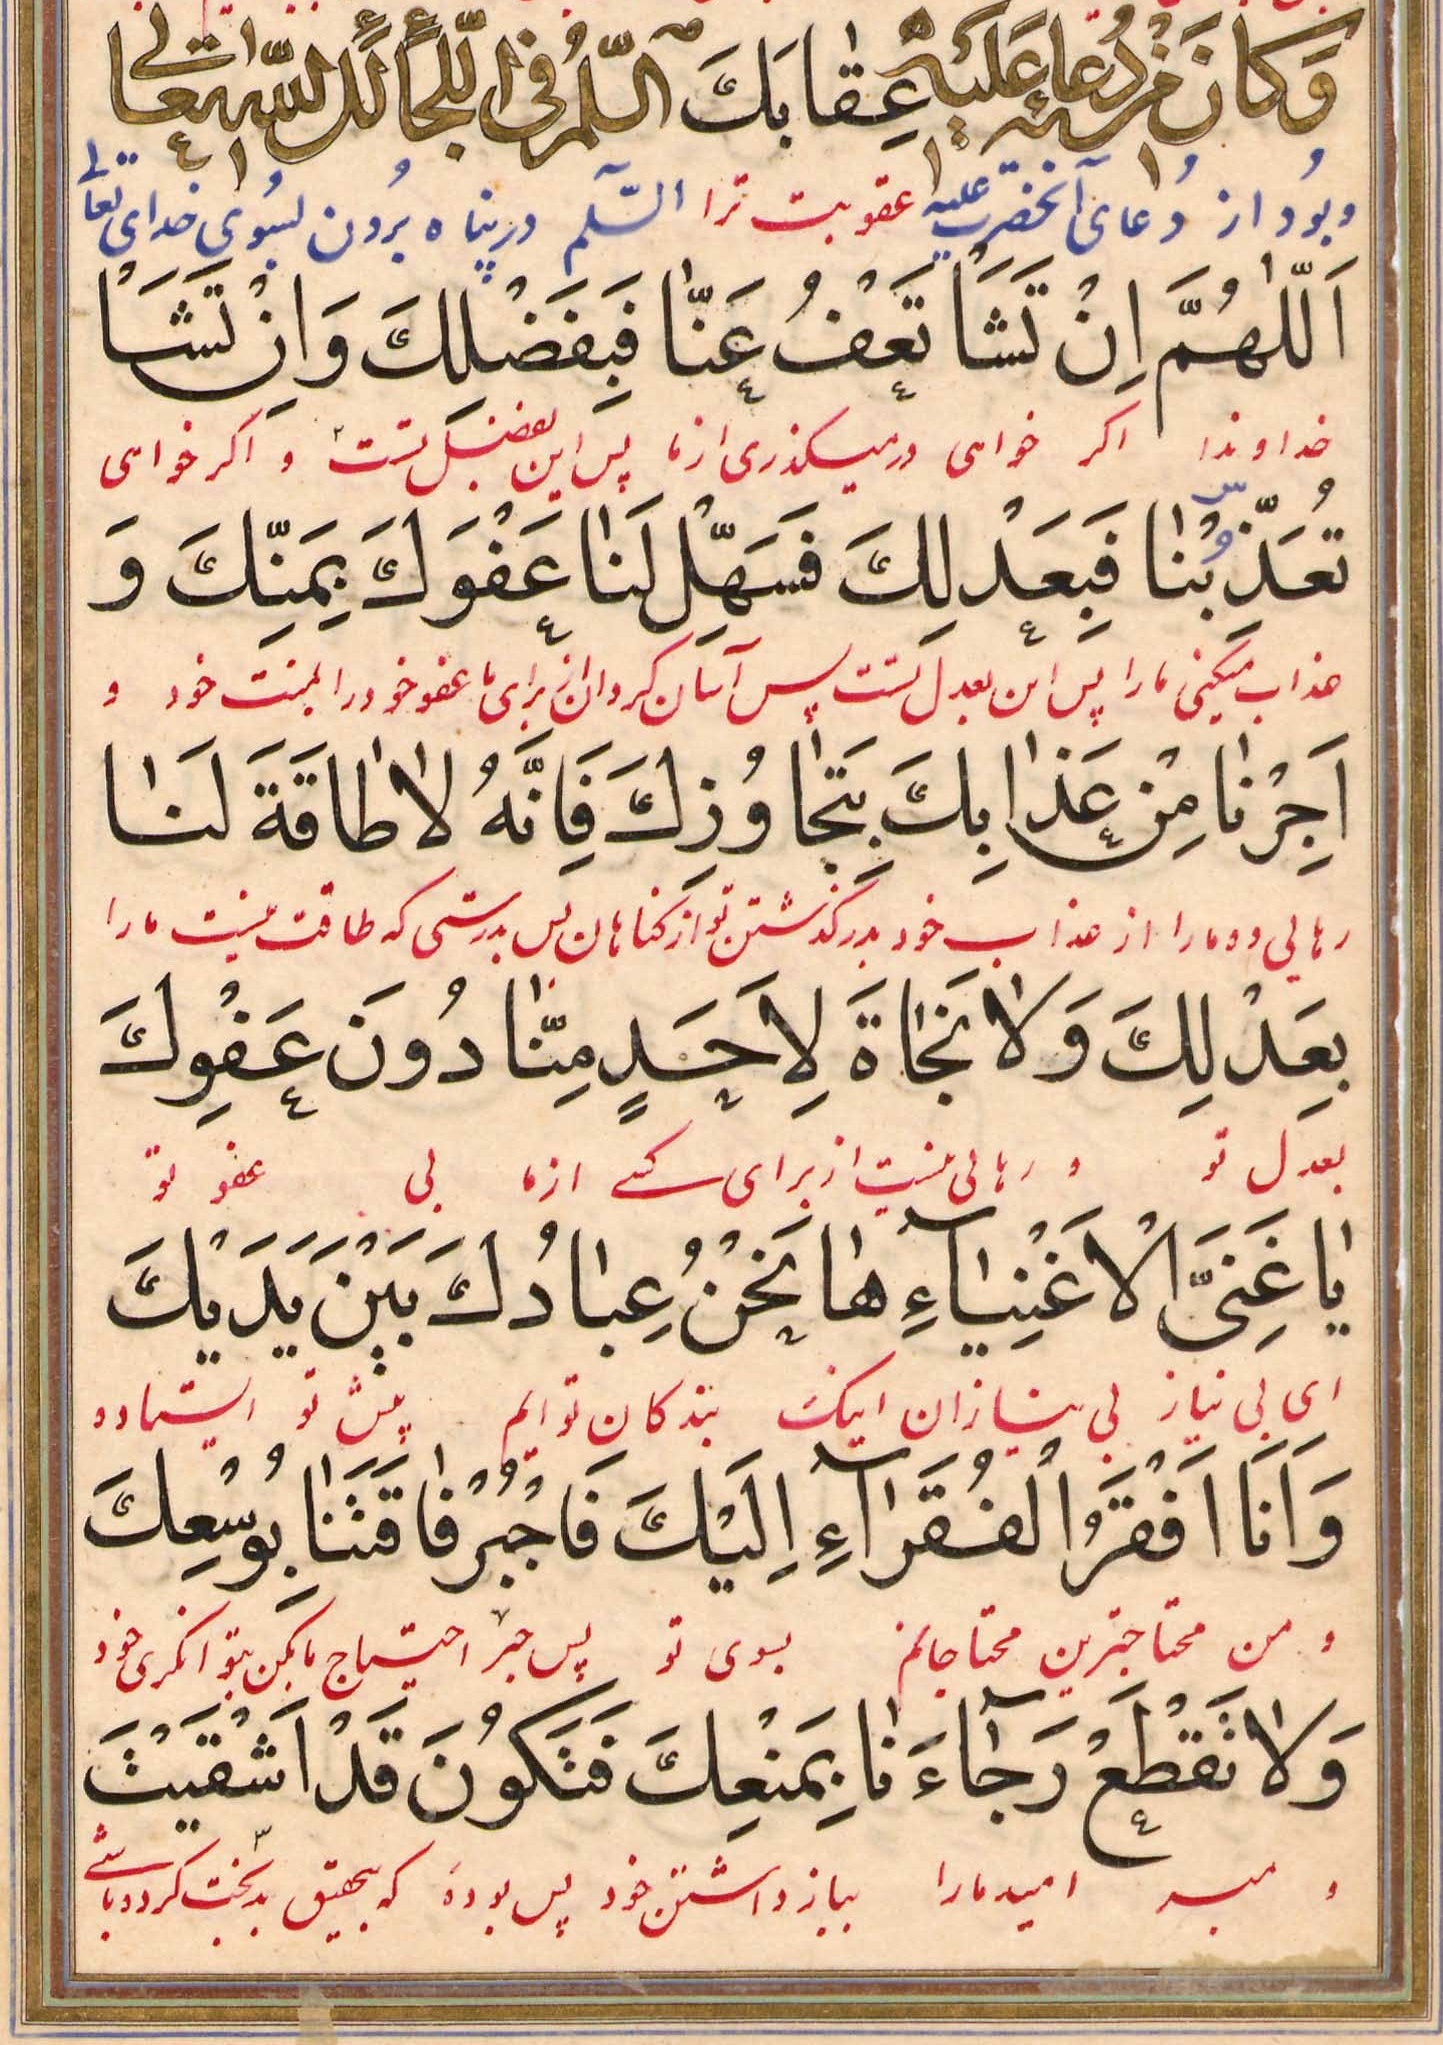 وَكانَ مِنْ دُعائِهِ عَلَيْهِ عِقابَكَ السَّلامُ فِي اللَّجَأِ إِلَى اللهِ تَعالى
و بود از دعای آنحضرت علیه عقوبت ترا السّلم در پناه بردن بسوی خدای تعالی
اَللّٰهُمَّ اِنْ تَشَأْ تَعْفُ عَنّٰا فَبِفَضْلِكَ وَاِنْ تَشَأْ
خداوندا اکر خواهی درمیکذری از ما پس این بفضل تست و اکر خواهی
تُعَذِّبْنٰا فَبِعَدْلِكَ فَسَهِّلْ لَنٰا عَفْوَكَ بِمَنِّكَ وَ
عذاب میکنی ما را پس این بعدل تست پس آسان کردان از برای ما عفو خود را بمنت خود و
اَجِرْنٰا مِنْ عَذٰابِكَ بِتَجٰاوُزِكَ فَاِنَّهُ لاٰ طٰاقَةَ لَنٰا
رهایی ده ما را از عذاب خود بدرکذشتن تو از کناهان پس بدرستی که طاقت نیست ما را
بِعَدْلِكَ وَلاٰ نَجٰاةَ لِاَحَدٍ مِنّٰا دُونَ عَفْوِكَ
بعدل تو و رهایی نیست از برای کسی از ما بی عفو تو
يٰا غَنِىَّ الْاَغْنِيٰآءِ هٰا نَحْنُ عِبٰادُكَ بَيْنَ يَدَيْكَ
ای بی نیاز بی نیازان اینک بندکان توایم پیش تو ایستاده
وَاَنَا اَفْقَرُ الْفُقَرٰآءِ اِلَيْكَ فَاجْبُرْ فٰاقَتَنٰا بِوُسْعِكَ
و من محتاجترین محتاجانم بسوی تو پس جبر احتیاج ما بکن بتوانکری خود
وَلاٰ تَقْطَعْ رَجٰآءَنٰا بِمَنْعِكَ فَتَكُونَ قَدْ اَشْقَيْتَ
و مبر امید ما را بباز داشتن خود پس بوده که بتحقیق بدبخت کرده باشی